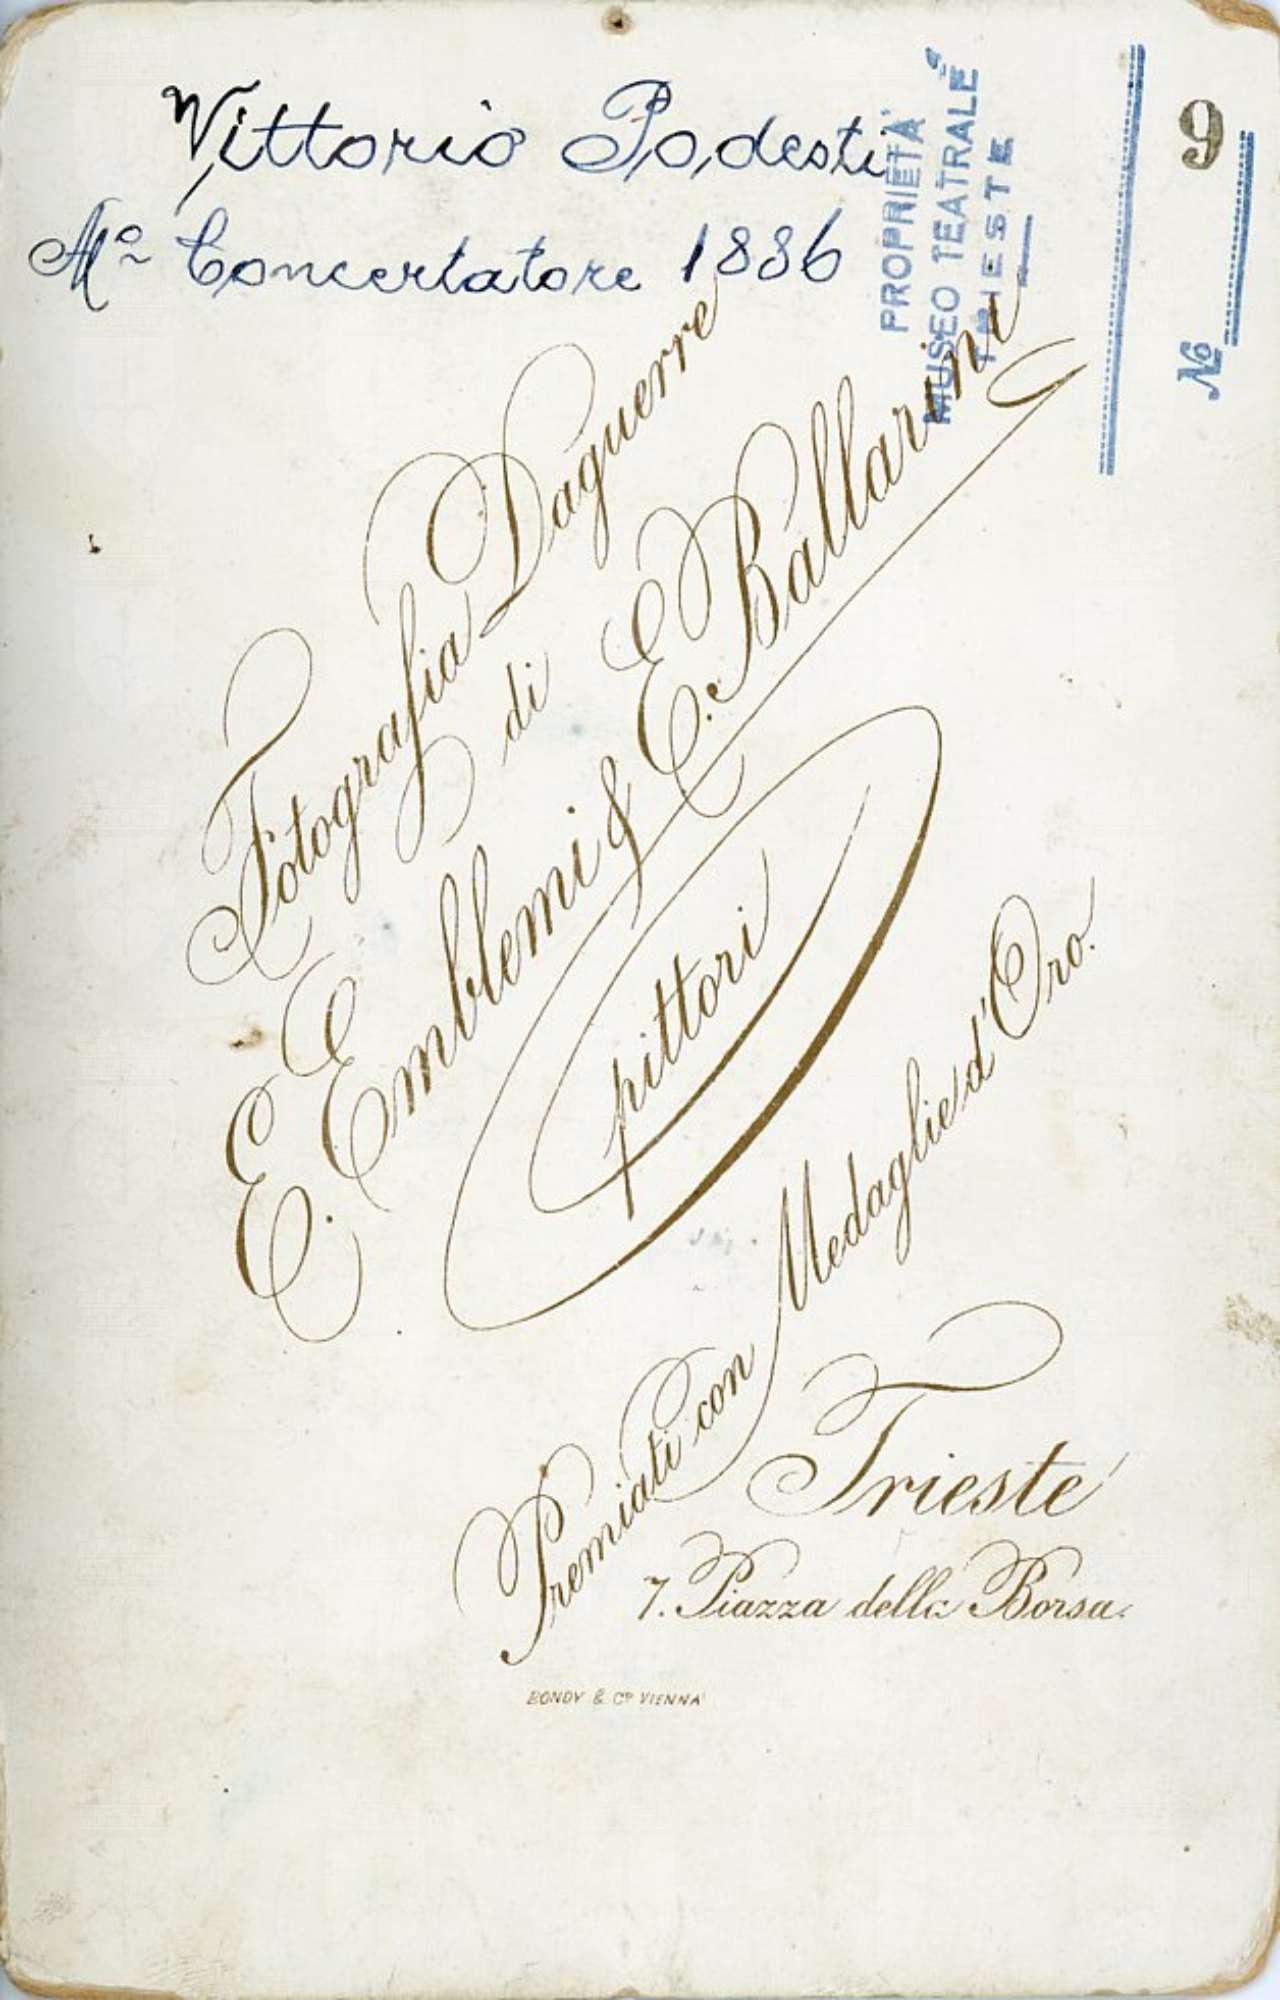 Vittorio Podesti
Mº Concertatore 1886
PROPRIETÀ
MUSEO TEATRALE
TRIESTE
9
№
Fotografia Daguerre
di
E. Emblemi & E. Ballarini
pittori
Premiati con Medaglie d'Oro.
Trieste
7. Piazza della Borsa.
BONDY & Cº VIENNA